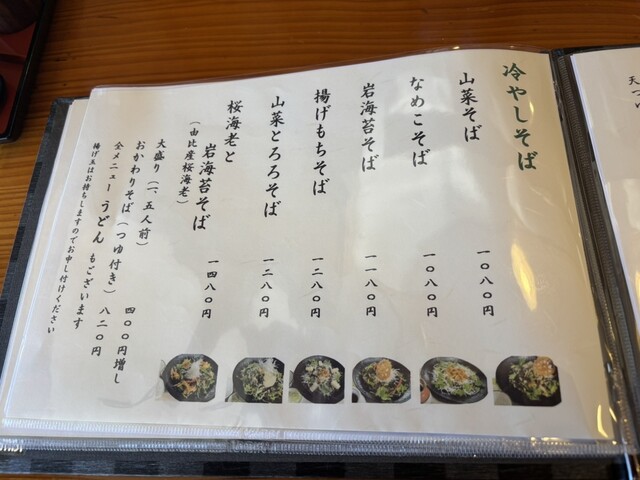 冷やしそば
山菜そば 一〇八〇円
なめこそば 一〇八〇円
岩海苔そば 一一八〇円
揚げもちそば 一二八〇円
山菜とろろそば 一二八〇円
桜海老と
岩海苔そば 一四八〇円
（由比産桜海老）
大盛り（一、五人前） 四〇〇円増し
おかわりそば（つゆ付き） 八二〇円
全メニュー うどん もございます
揚げ玉はお持ちしますのでお申し付けください
天つ